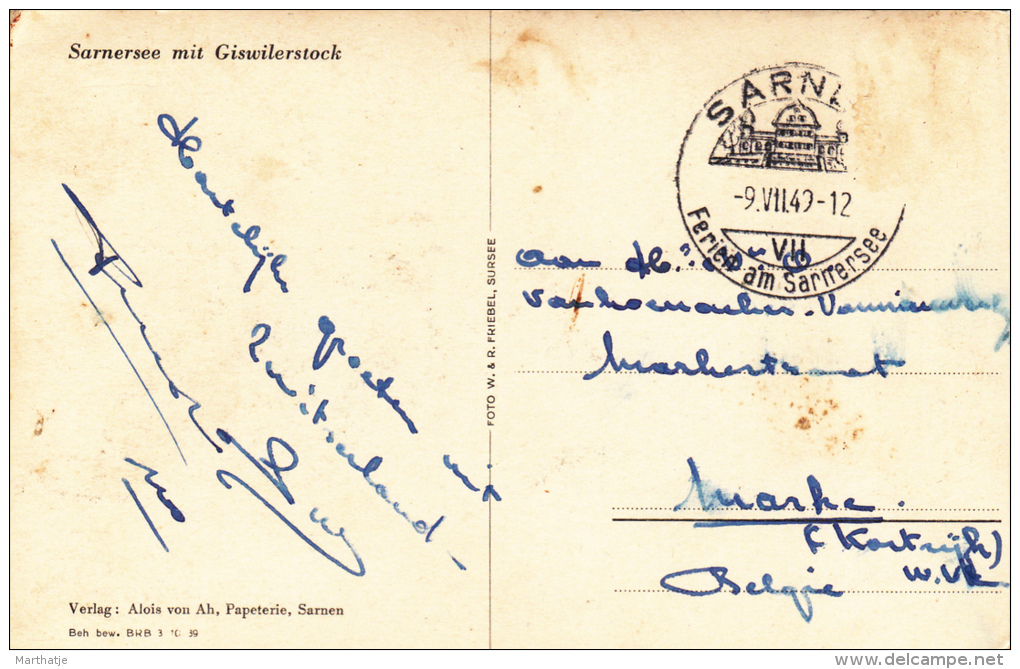 Sarnersee mit Giswilerstock
Hartelijke
groeten uit
Zwitserland
Verlag: Alois von Ah, Papeterie, Sarnen
Beh bew. BRB 3 10 39
FOTO W. & R. FRIEBEL, SURSEE
SARNEN
-9.VII.49-12
VII
Ferien am Sarnersee
Aan
Markestraat
Marke.
(Kortrijk)
W.Vl
België
Marthatje
delcampe.net